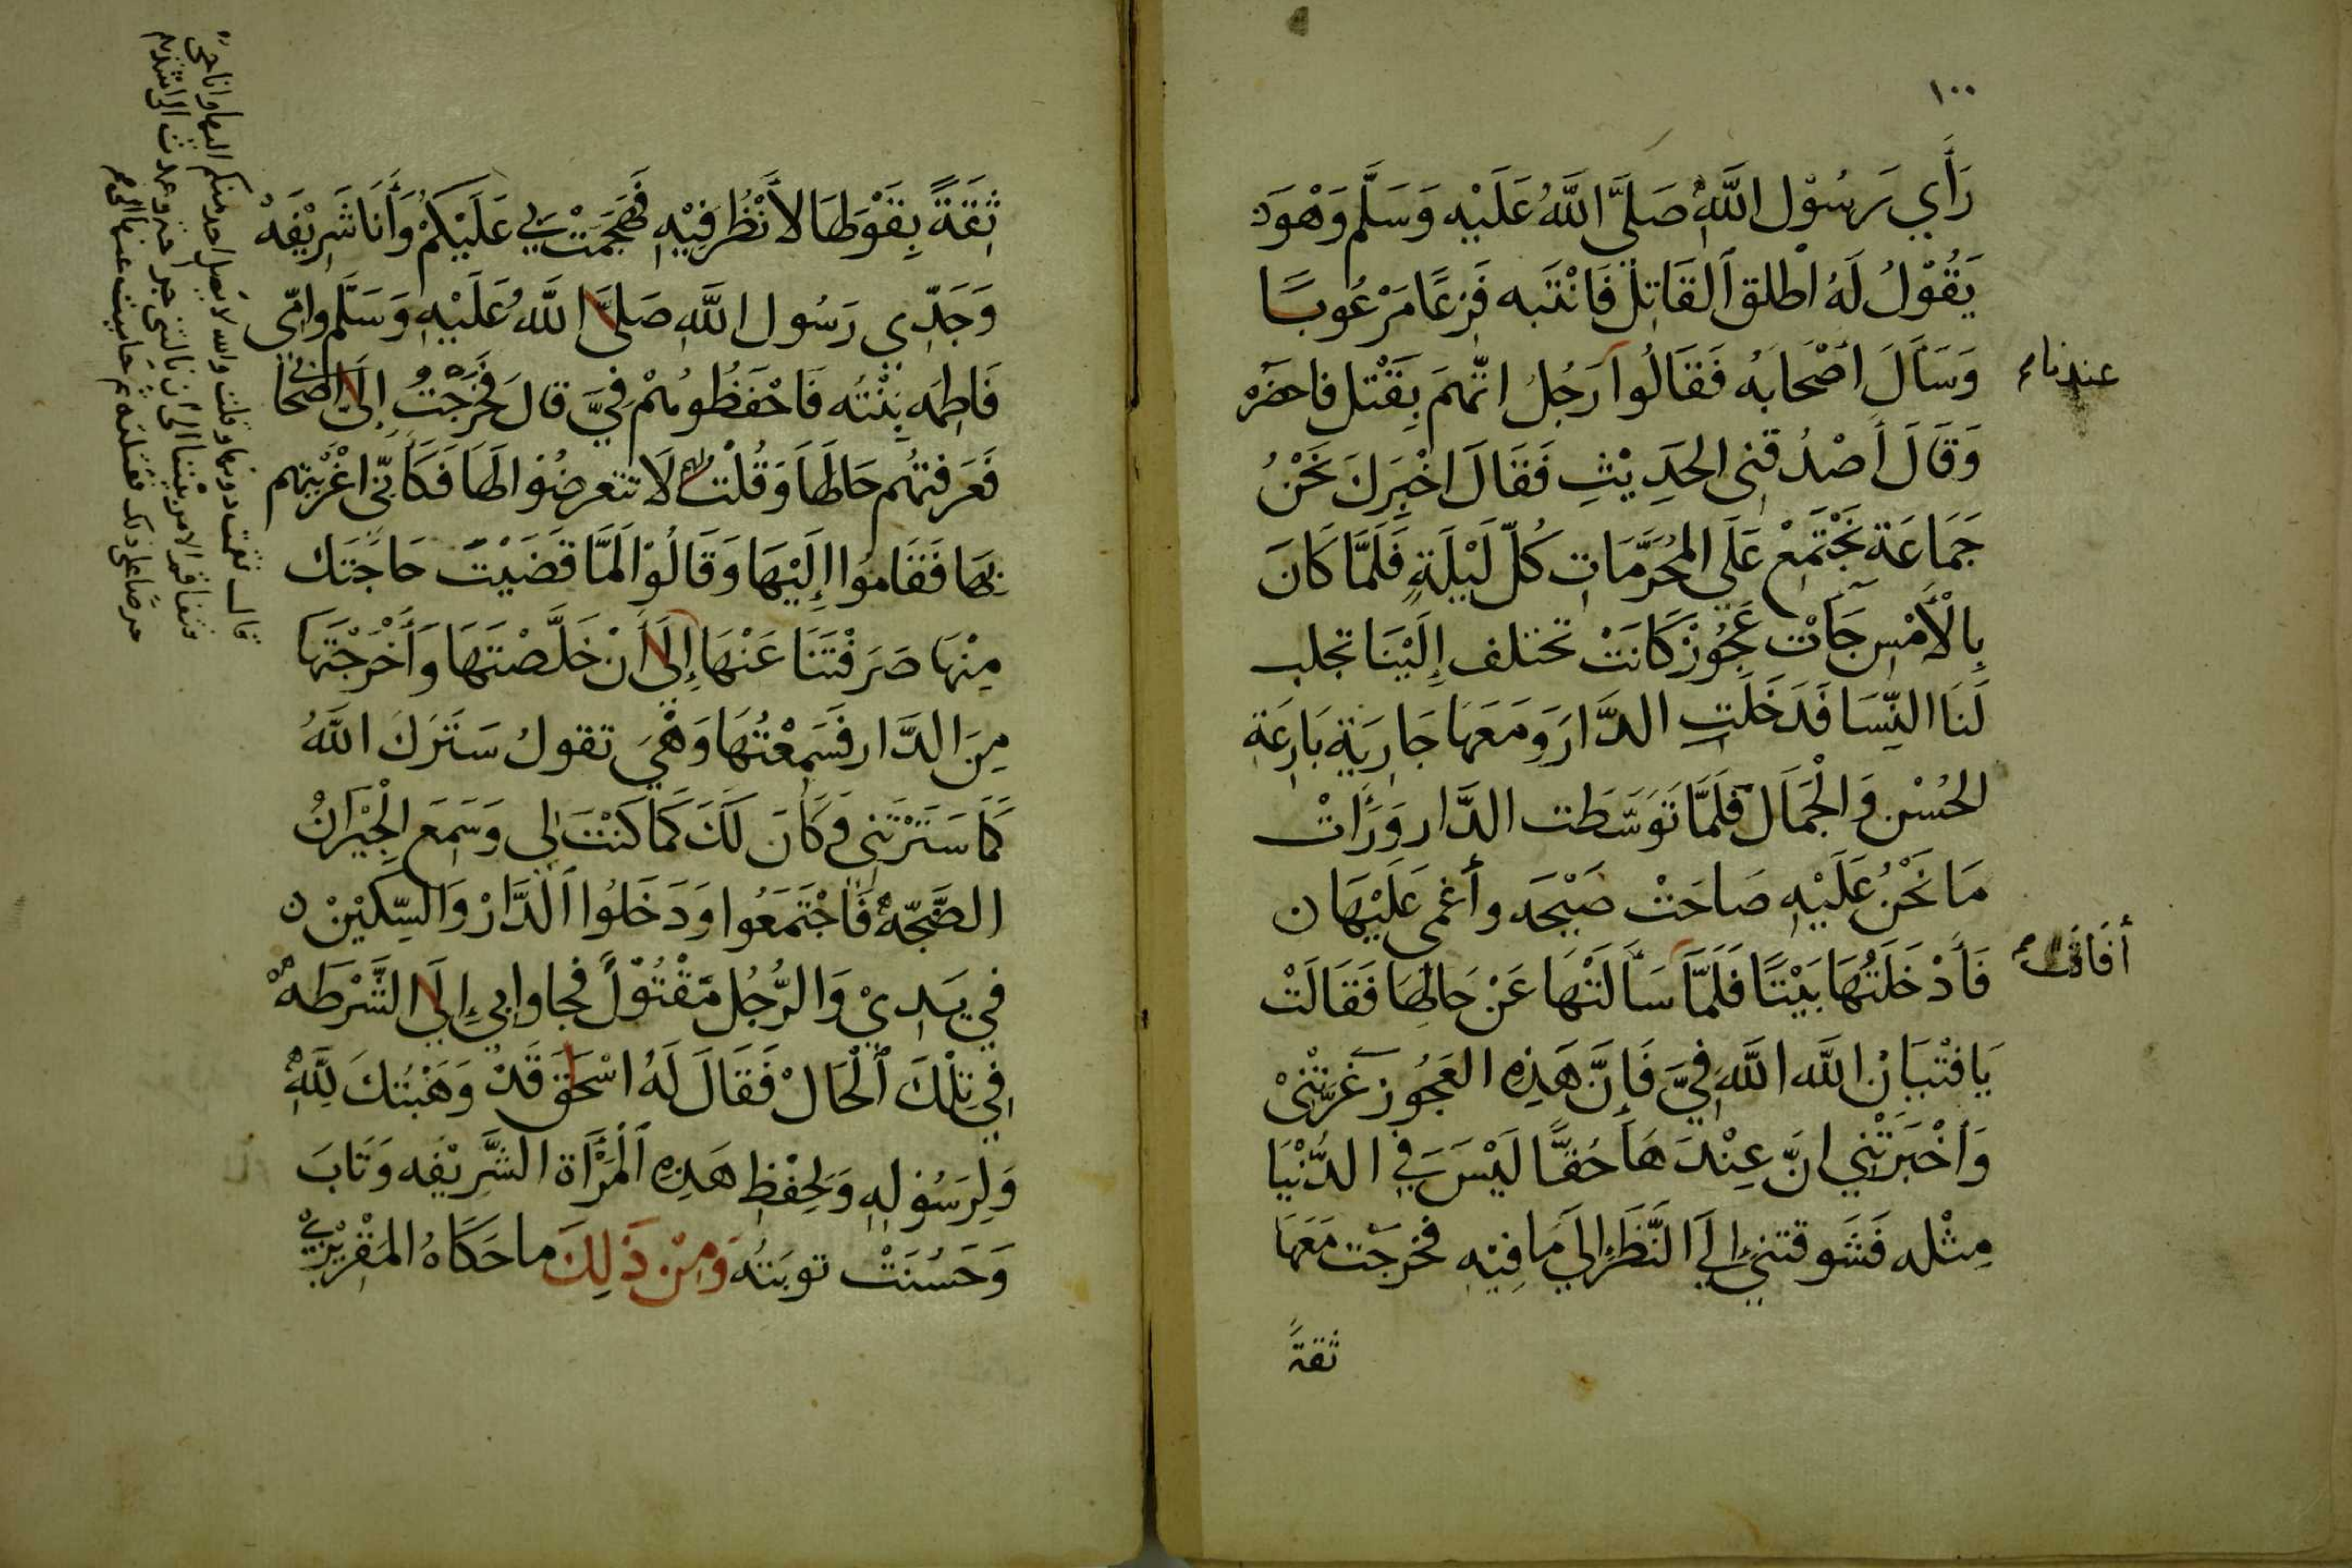 ١٠٠
رَأَي رَسُوْل اللَّهِ صَلَّى اللَّهُ عَلَيْهِ وَسَلَّم وَهْوَ
يَقُوْلُ لَهُ اطْلق القَاتِل فَانْتَبه فَزِعًا مَرْعُوبًا
وَسَأَلَ اصْحَابَهُ فَقَالُوا رَجُلُ اتَّهِمَ بِقَتْل فاحضَره
عندنا
وَقَالَ أَصْدُقنِى الحَدِيْثِ فَقَالَ اخْبِرَكَ نَحْنُ
جَمَاعَة نَجْتَمِعْ عَلَى المُحَرَّمَاتِ كُلّ لَيْلَةٍ فَلَمَّا كَانَ
بِالْأَمْسِ جَآت عَجُوْزٌ كَانَتْ تختلف إِلَيْنَا تجلب
لَنَا النِّسَا فَدَخَلَتِ الدَّارَ وَمَعَهَا جَارِيَة بَارِعَةِ
الحُسْن وَالْجَمَال فَلَمَّا تَوَسَّطَت الدَّار وَرَأَتْ
مَا نَحْنُ عَلَيْهِ صَاحَتْ صَيْحَه وأغمى عَلَيْهَا
فَأَدْخَلَتُهَا بَيْتًا فَلَمَّا سَأَلَتْهَا عَنْ حَالِهَا فَقَالَتْ
أفَاقَت
يَافِتْيَانْ اللَّه اللَّهَ فِيَّ فَإِنَّ هَذِهِ العَجُوز غَرَّتْنِىْ
وَأَخْبَرَتْنِي انَّ عِنْدَهَا حُقًّا لَيْسَ فِي الدُّنْيَا
مِثْله فَشَوقتنِي إِلَي النَّظَرِ إِلَي مَا فِيْهِ فخرجَت مَعَهَا
ثقةً
ثِقَةً بِقَوْلِهَا لأَنْظُر فِيْهِ فَهَجَمَتْ بِي عَلَيْكُمْ وَأَنَا شَرِيْفَهْ
وَجَدِّي رَسُول اللَّهِ صَلَّى اللَّهُ عَلَيْهِ وَسَلَّم وامّى
فَاطِمَه بِنْتُه فَاحْفَظُوهُمْ فِيَّ قالَ فَخَرَجْتُ إِلَى اصْحَابى
فَعَرفتهُم حَالهَا وَقُلْتُ لَا تتعرضُوا لَهَا فَكَأَنِّى اغْرَيْتهم
بِهَا فَقَامُوا إِلَيْهَا وَقَالُوْا لَمَّا قَضَيْتَ حَاجَتَك
مِنْهَا صَرَفْتَنَا عَنْهَا إِلَى أَنْ خَلَّصْتَهَا وَأَخْرَجْتَهَا
مِنَ الدَّار فَسَمِعْتُهَا وَهْيَ تقولُ سَتَرَكَ اللَّهُ
كَمَا سَتَرْتَنِى وَكَانَ لَكَ كَمَا كَنْتَ لِي وَسَمَعَ الْجِيْرَانُ
الضَّجّه فَاجْتَمَعُوا وَدَخَلُوا الدَّارْ وَالسِّكِيْنْ
فِي يَدِيْ وَالرُّجُل مَقْتُوْلً فجاوا بِي إِلَى الشَّرْطَهْ
فِي تِلْكَ الْحَالْ فَقَالَ لَهُ اسْحَق قَدْ وَهَبْتُكَ لِلَّهِ
وَلِرَسُوْلِهِ وَلِحِفْظِ هَذِهِ المَرْأَة الشَّرِيْفه وَتَابَ
وَحَسُنَتْ توبَتُه وَمِنْ ذَلِكَ ما حَكَاهُ المَقْرِيْزِي
قالـ فقمت دونها وقلت والله لا يصل احد منكم اليها وانا حى